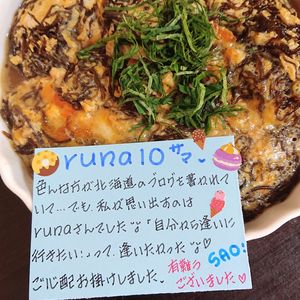 runa10サマ
色んな方が北海道のブログを書かれて
いて…でも、私が思い出すのは
runaさんでした「自分から逢いに
行きたい」って、逢いたかった♡
ご心配お掛けしました。
有難う
ございました♡
SAO!